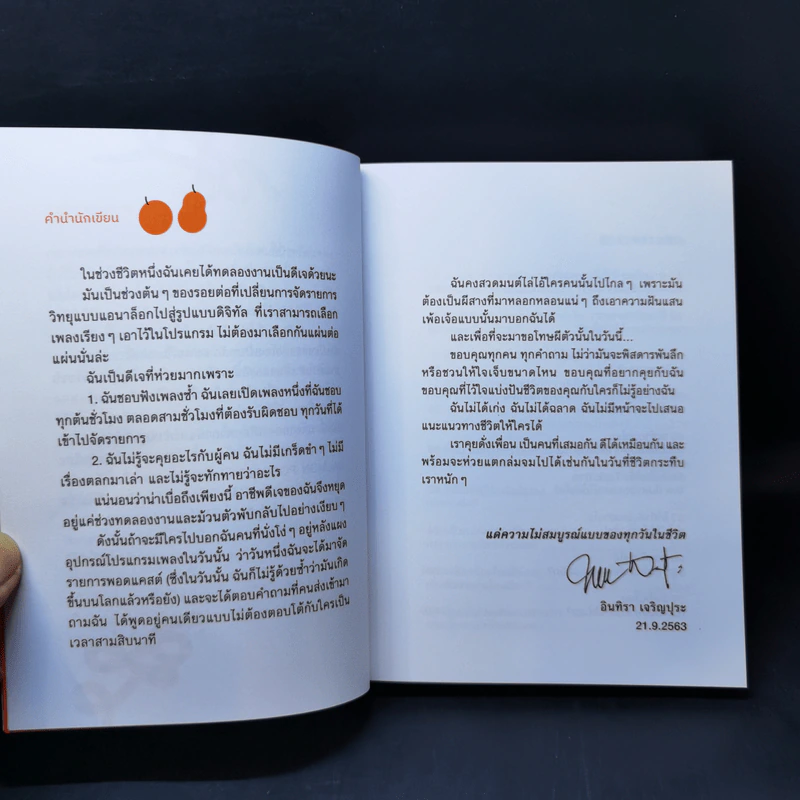 คำนำนักเขียน
ในช่วงชีวิตหนึ่งฉันเคยได้ทดลองงานเป็นดีเจด้วยนะ
มันเป็นช่วงต้น ๆ ของรอยต่อที่เปลี่ยนการจัดรายการ
วิทยุแบบแอนาล็อกไปสู่รูปแบบดิจิทัล ที่เราสามารถเลือก
เพลงเรียง ๆ เอาไว้ในโปรแกรม ไม่ต้องมาเลือกกันแผ่นต่อ
แผ่นนั่นล่ะ
ฉันเป็นดีเจที่ห่วยมากเพราะ
1. ฉันชอบฟังเพลงซ้ำ ฉันเลยเปิดเพลงหนึ่งที่ฉันชอบ
ทุกต้นชั่วโมง ตลอดสามชั่วโมงที่ต้องรับผิดชอบ ทุกวันที่ได้
เข้าไปจัดรายการ
2. ฉันไม่รู้จะคุยอะไรกับผู้คน ฉันไม่มีเกร็ดขำ ๆ ไม่มี
เรื่องตลกมาเล่า และไม่รู้จะทักทายว่าอะไร
แน่นอนว่าน่าเบื่อถึงเพียงนี้ อาชีพดีเจของฉันจึงหยุด
อยู่แค่ช่วงทดลองงานและม้วนตัวพับกลับไปอย่างเงียบ ๆ
ดังนั้นถ้าจะมีใครไปบอกฉันคนที่นั่งโง่ ๆ อยู่หลังแผง
อุปกรณ์โปรแกรมเพลงในวันนั้น ว่าวันหนึ่งฉันจะได้มาจัด
รายการพอดแคสต์ (ซึ่งในวันนั้น ฉันก็ไม่รู้ด้วยซ้ำว่ามันเกิด
ขึ้นบนโลกแล้วหรือยัง) และจะได้ตอบคำถามที่คนส่งเข้ามา
ถามฉัน ได้พูดอยู่คนเดียวแบบไม่ต้องตอบโต้กับใครเป็น
เวลาสามสิบนาที
ฉันคงสวดมนต์ไล่ไอ้ใครคนนั้นไปไกล ๆ เพราะมัน
ต้องเป็นผีสางที่มาหลอกหลอนแน่ ๆ ถึงเอาความฝันแสน
เพ้อเจ้อแบบนั้นมาบอกฉันได้
และเพื่อที่จะมาขอโทษผีตัวนั้นในวันนี้...
ขอบคุณทุกคน ทุกคำถาม ไม่ว่ามันจะพิสดารพันลึก
หรือชวนให้ใจเจ็บขนาดไหน ขอบคุณที่อยากคุยกับฉัน
ขอบคุณที่ไว้ใจแบ่งปันชีวิตของคุณกับใครก็ไม่รู้อย่างฉัน
ฉันไม่ได้เก่ง ฉันไม่ได้ฉลาด ฉันไม่มีหน้าจะไปเสนอ
แนะแนวทางชีวิตให้ใครได้
เราคุยดั่งเพื่อน เป็นคนที่เสมอกัน ดีได้เหมือนกัน และ
พร้อมจะห่วยแตกล่มจมไปได้เช่นกันในวันที่ชีวิตกระทืบ
เราหนัก ๆ
แด่ความไม่สมบูรณ์แบบของทุกวันในชีวิต
อินทิรา เจริญปุระ
21.9.2563